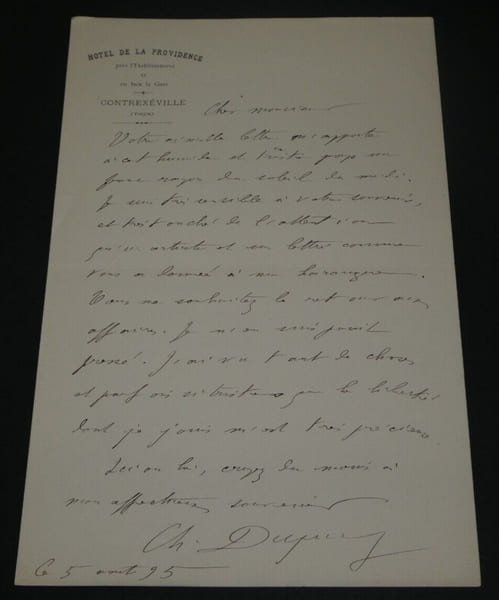 HOTEL DE LA PROVIDENCE
près l'Etablissement
ET
en face la Gare
CONTREXÉVILLE
(VOSGES)
Cher monsieur
Votre aimable lettre m'apporte
à cet humide et triste pays un
rayon du soleil du midi.
Je suis très sensible à votre souvenir,
et très touché de l'attention
qu'un artiste et un lettré comme
vous a donnée à ma harangue.
Vous me souhaitez le retour aux
affaires. Je n'en suis point
pressé. J'ai vu tant de choses
et parfois si tristes que la liberté
dont je jouis m'est très précieuse.
Ici ou là, croyez du moins à
mon affectueux souvenir
Ch. Dupuy
Ce 5 août 95